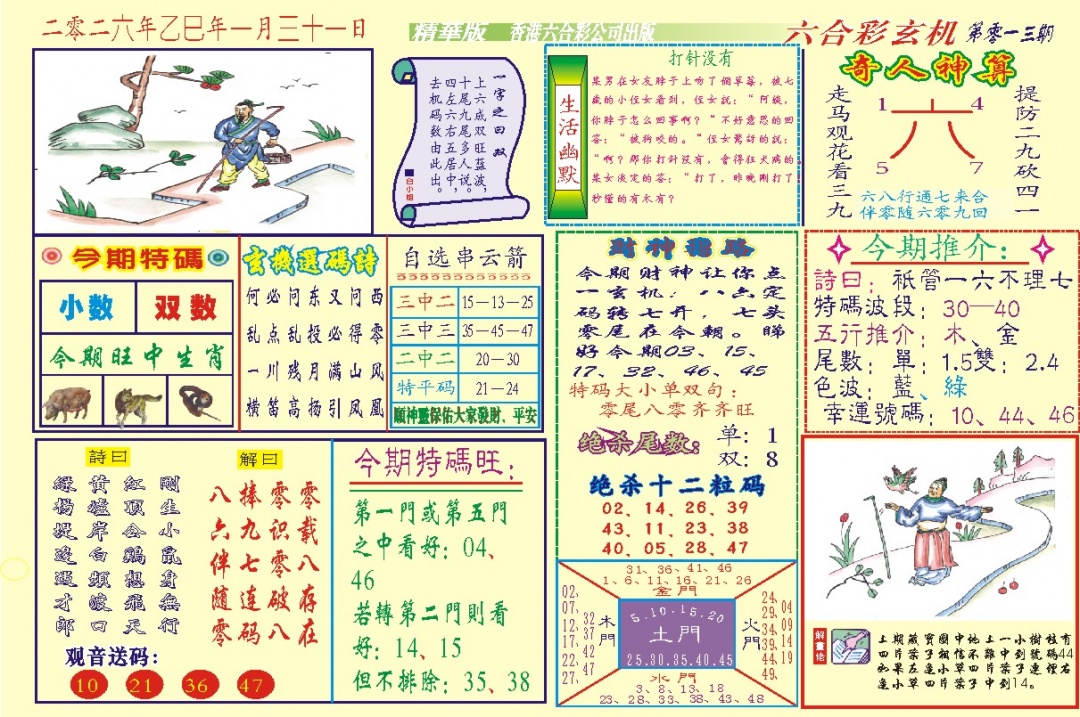 二零二六年乙巳年一月三十一日
精華版 香港六合彩公司出版
六合彩玄机 第零一三期
一字之曰 双
上六成双旺蓝波，
十尾九尾多人说，
四左右五居中。
去机码数由此出。
白小姐
生活幽默
打针没有
某男在女友脖子上吻了個草莓，被七
歲的小侄女看到，侄女說：“阿姨，
你脖子怎么回事啊？”不好意思的回
答：“被狗咬的。”侄女驚訝的說：
“啊？那你打針沒有，會得狂犬病的。
某女淡定的答：“打了，昨晚剛打了
秒懂的有木有？
奇人神算
走马观花看三九
提防二九砍四一
1 4
六
5 7
六八行通七来合
伴零随六零九回
今期特碼
小数 双数
今期旺中生肖
玄機選碼詩
何必问东又问西
乱点乱投必得零
一川残月满山风
横笛高扬引凤凰
自选串云箭
三中二 15—13—25
三中三 35—45—47
二中二 20—30
特平码 21—24
願神靈保佑大家發財、平安
財神指路
今期财神让你点
一玄机：八六定
码转七开，七头
零尾在今朝。睇
好今期03、15、
17、32、46、45
特码大小单双句：
零尾八零齐齐旺
绝杀尾数：
单：1
双：8
绝杀十二粒码
02、14、26、39
43、11、23、38
40、05、28、47
今期推介：
詩曰：祇管一六不理七
特碼波段：30—40
五行推介：木、金
尾數：單：1.5雙：2.4
色波：藍、綠
幸運號碼：10、44、46
詩曰
剛生小鼠身無行
红頂公鷄想飛天
黄爐岸白頻渡口
綠楊堤邊遇才郎
解曰
八捧零零
六九识载
伴七零八
随连破存
零码八在
观音送码：
10 21 36 47
今期特碼旺：
第一門或第五門
之中看好：04、
46
若轉第二門則看
好：14、15
但不排除：35、38
31、36、41、46
1、6、11、16、21、26
金門
02、07、12、17、22、27、
32、37、42、47
木門
5.10.15.20
土門
25.30.35.40.45
火門
24、29、34、39、44、49、
04、09、14、19
水門
3、8、13、18
23、28、33、38、43、48
解畫佬
上期藏寶圖中地上一小樹枝有
四片葉子相信不難中到號碼44
如果左邊小草四片葉子連埋右
邊小草四片葉子中到14。